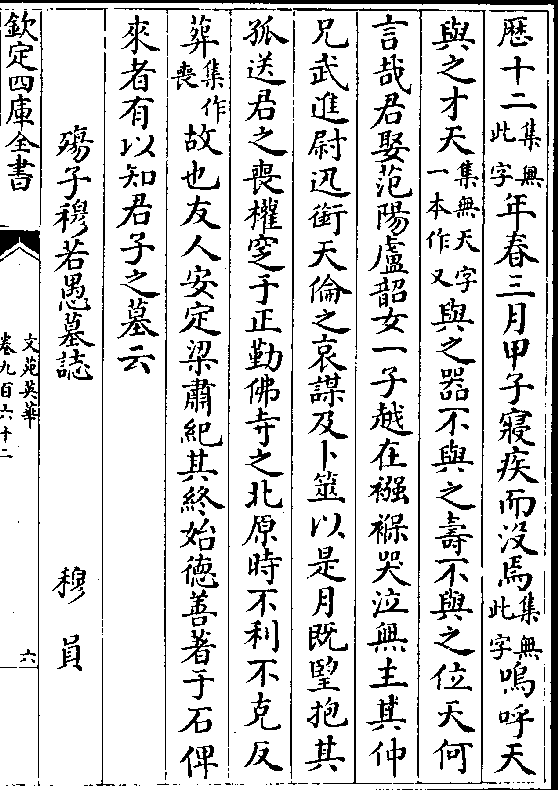 歴十二集無此字年春三月甲子寢疾而没焉集無此字嗚呼天
與之才天集無天字一本作又與之器不與之壽不與之位天何
言哉君娶范陽盧韶女一子越在襁褓哭泣無主其仲
兄武進尉迅銜天倫之哀謀及卜筮以是月既望抱其
孤送君之喪權窆于正勤佛寺之北原時不利不克反
葬集作喪故也友人安定梁肅紀其終始德善著于石俾
來者有以知君子之墓云
殤子穆若愚墓誌 穆員
欽定四庫全書
文苑英華
卷九百六十二
六